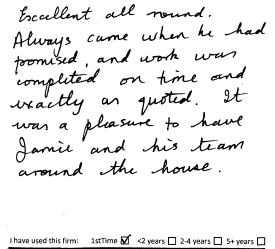 Excellent all round.
Always came when he had
promised, and work was
completed on time and
exactly as quoted. It
was a pleasure to have
Jamie and his team
around the house.
I have used this firm: 1stTime ☑ <2 years ☐ 2-4 years ☐ 5+ years ☐